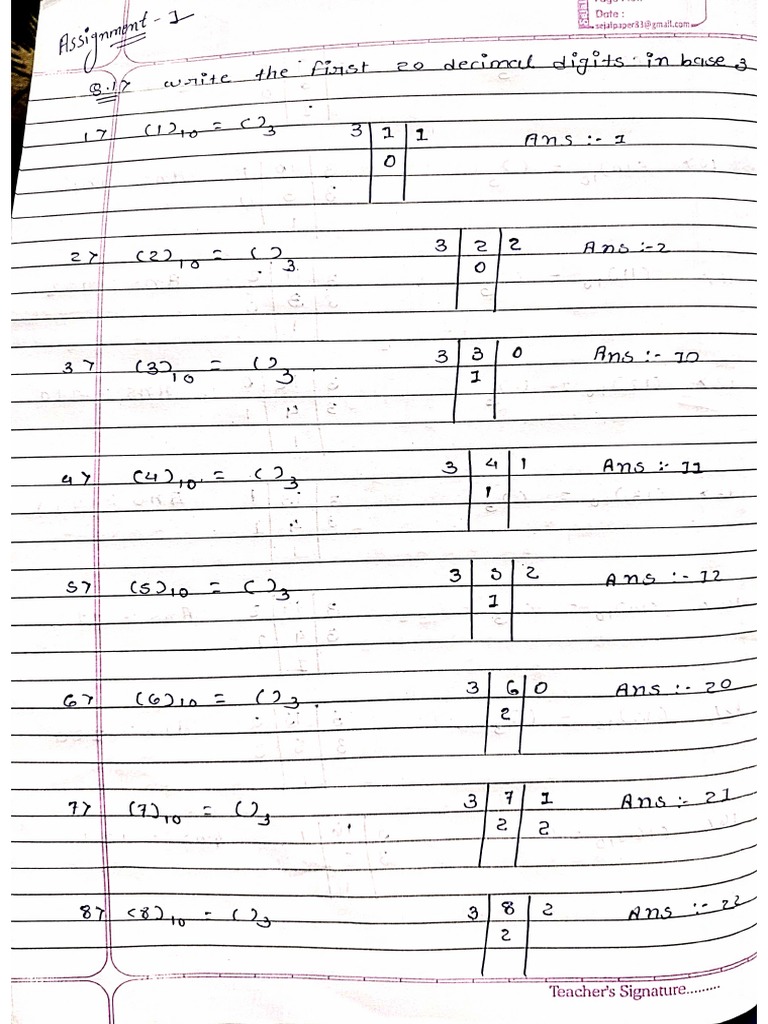 Date :
sejalpaper83@gmail.com
Assignment - 1
Q.1> write the first 20 decimal digits in base 3
1> (1)10 = ( )3 3 | 1 | 1 Ans :- 1
0
2> (2)10 = ( )3 3 | 2 | 2 Ans :- 2
0
3> (3)10 = ( )3 3 | 3 | 0 Ans :- 10
1
4> (4)10 = ( )3 3 | 4 | 1 Ans :- 11
1
5> (5)10 = ( )3 3 | 5 | 2 Ans :- 12
1
6> (6)10 = ( )3 3 | 6 | 0 Ans :- 20
2
7> (7)10 = ( )3 3 | 7 | 1 Ans :- 21
2 | 2
8> (8)10 = ( )3 3 | 8 | 2 Ans :- 22
2
Teacher's Signature.........